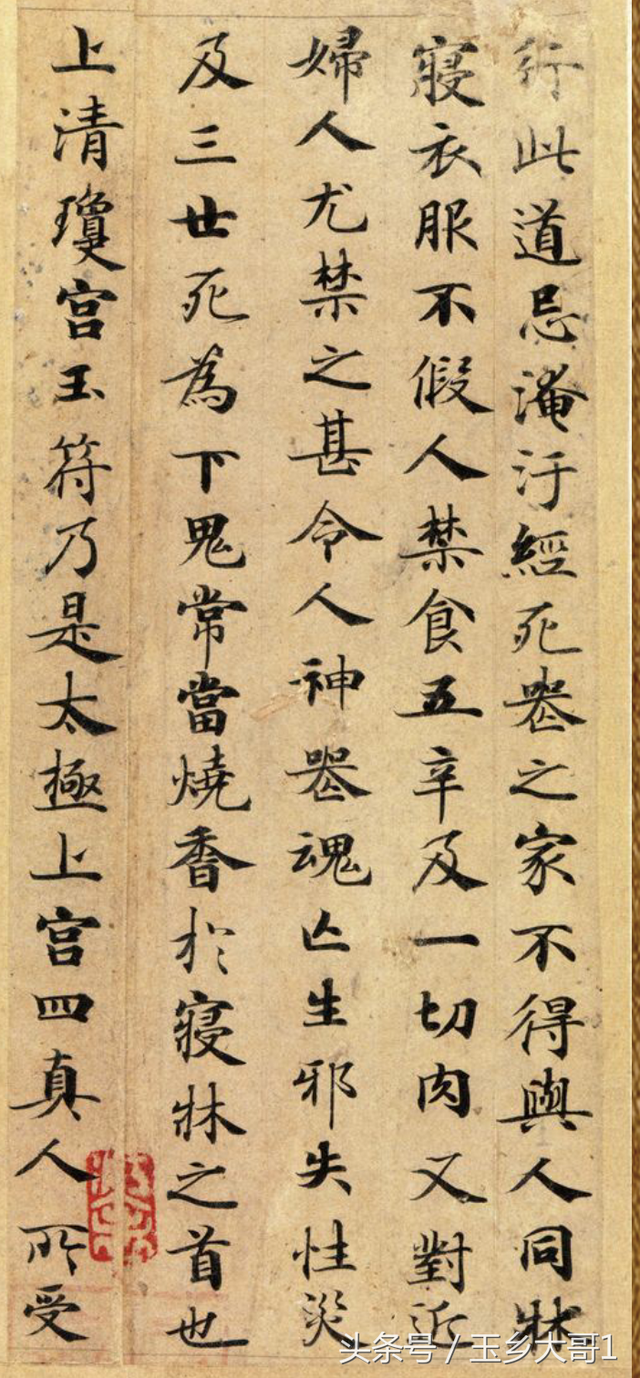 行此道忌淹汙經死丧之家不得與人同牀
寢衣服不假人禁食五辛及一切肉又對近
婦人尤禁之甚令人神丧魂亾生邪失性災
及三世死為下鬼常當燒香於寢牀之首也
上清瓊宫玉符乃是太極上宫四真人所受
头条号 / 玉乡大哥1